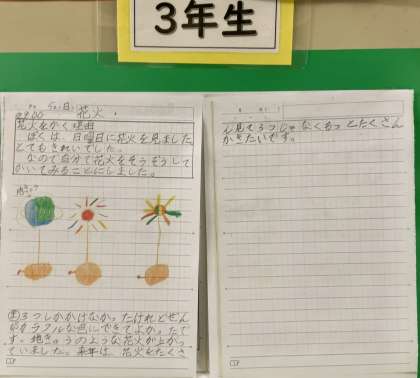 3年生
花火
花火をかく理由
ぼくは、日曜日に花火を見ました。
とてもきれいでした。
なので自分で花火をそうぞうして
かいてみることにしました。
3つしかかけなかったけれどぜん
ぶカラフルな色にできてよかったで
す。地きゅうのような花火が上がっ
ていました。来年は、花火をたくさ
ん見て3つじゃなくもっとたくさん
かきたいです。